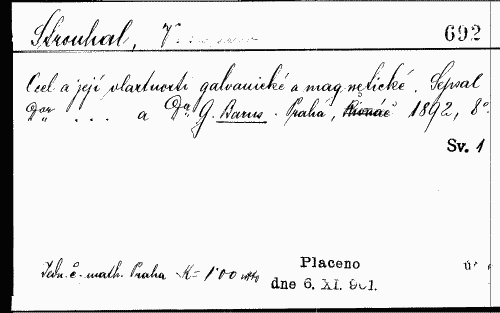 Strouhal, V
692
Ocel a její vlastnosti galvanické a magnetické. Sepsal
Dor . . . a Dor G. Barus. Praha, 1892, 8°.
Sv. 1
Jedn. č. math. Praha K= 1·00 netto
Placeno
dne 6. XI. 901.